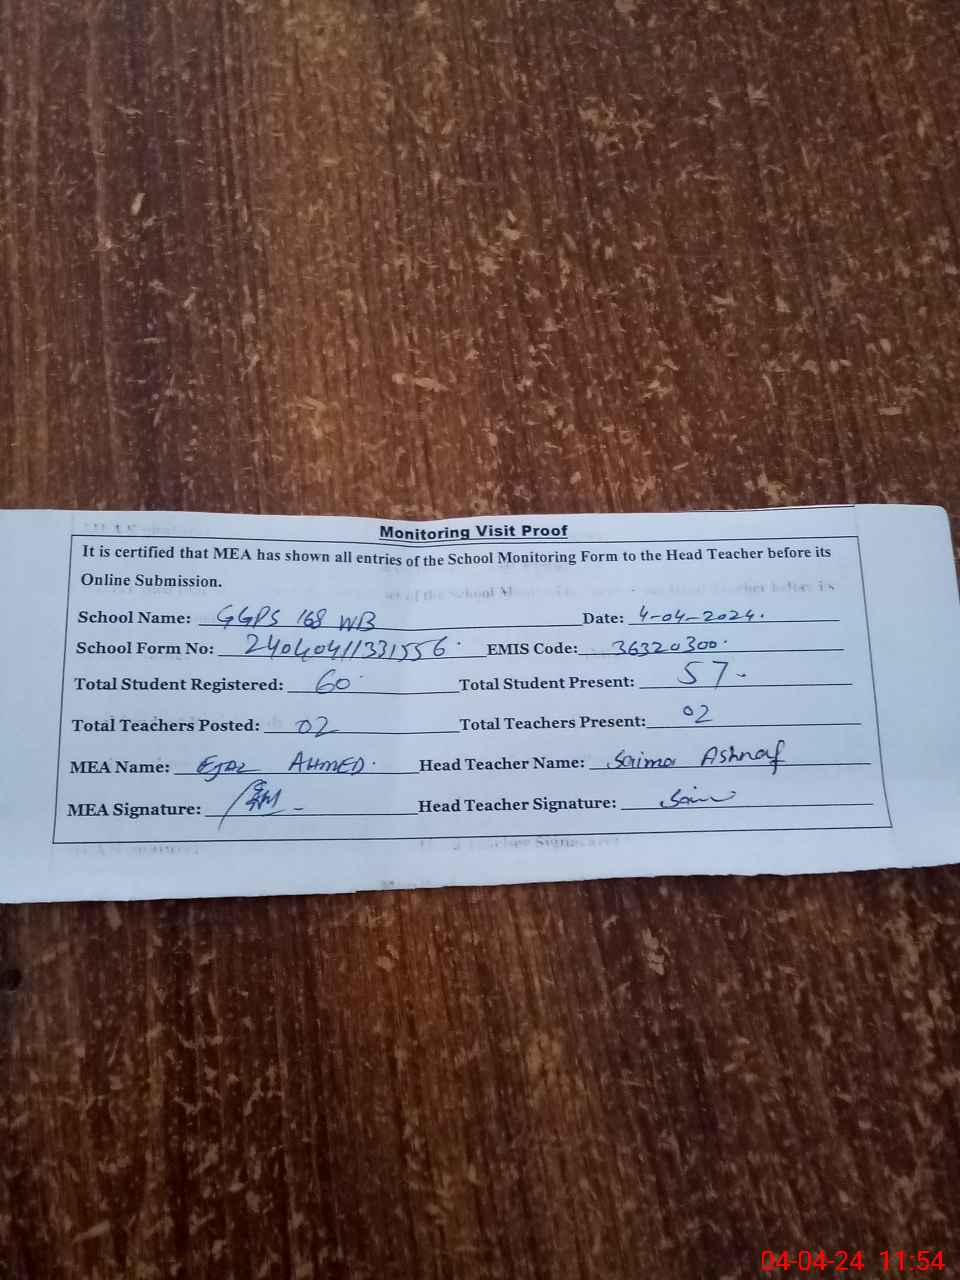 Monitoring Visit Proof
It is certified that MEA has shown all entries of the School Monitoring Form to the Head Teacher before its
Online Submission.
School Name: GGPS 168 WB Date: 4-04-2024.
School Form No: 24040411331556 EMIS Code: 36320300
Total Student Registered: 60 Total Student Present: 57
Total Teachers Posted: 02 Total Teachers Present: 02
MEA Name: EJAZ AHMED Head Teacher Name: Saima Ashraf
MEA Signature: Head Teacher Signature:
04-04-24 11:54